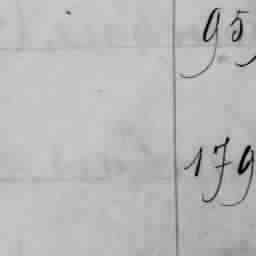 95
179